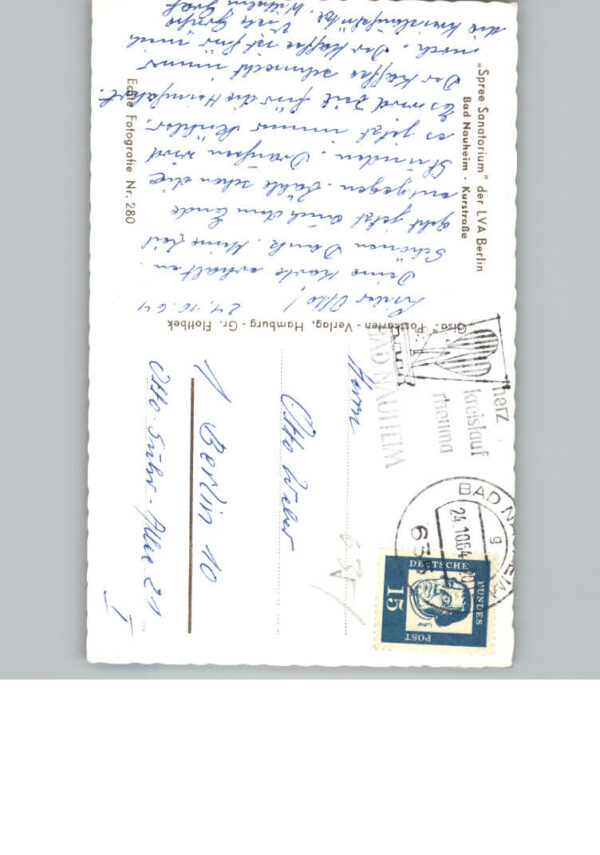 „Spree Sanatorium" der LVA Berlin
Bad Nauheim - Kurstraße
24.10.64
Lieber Otto!
Deine Karte erhalten.
Schönen Dank. Meine Zeit
geht jetzt auch dem Ende
entgegen. Zähle schon die
Stunden. Draußen wird
es jetzt immer kühler.
Es wird Zeit für die Heimfahrt.
Der Kaffee schmeckt immer
noch. Der Kaffee ist für mich
die
Viele Grüße
Echte Fotografie Nr. 280
Gisa" Postkarten-Verlag, Hamburg-Gr. Flottbek
herz
kreislauf
rheuma
BAD NAUHEIM
BAD NAUHEIM
24.10.64
g
DEUTSCHE
BUNDES
POST
15
Herrn
Otto Weber
1 Berlin 10
Otto Suhr-Allee 21
I